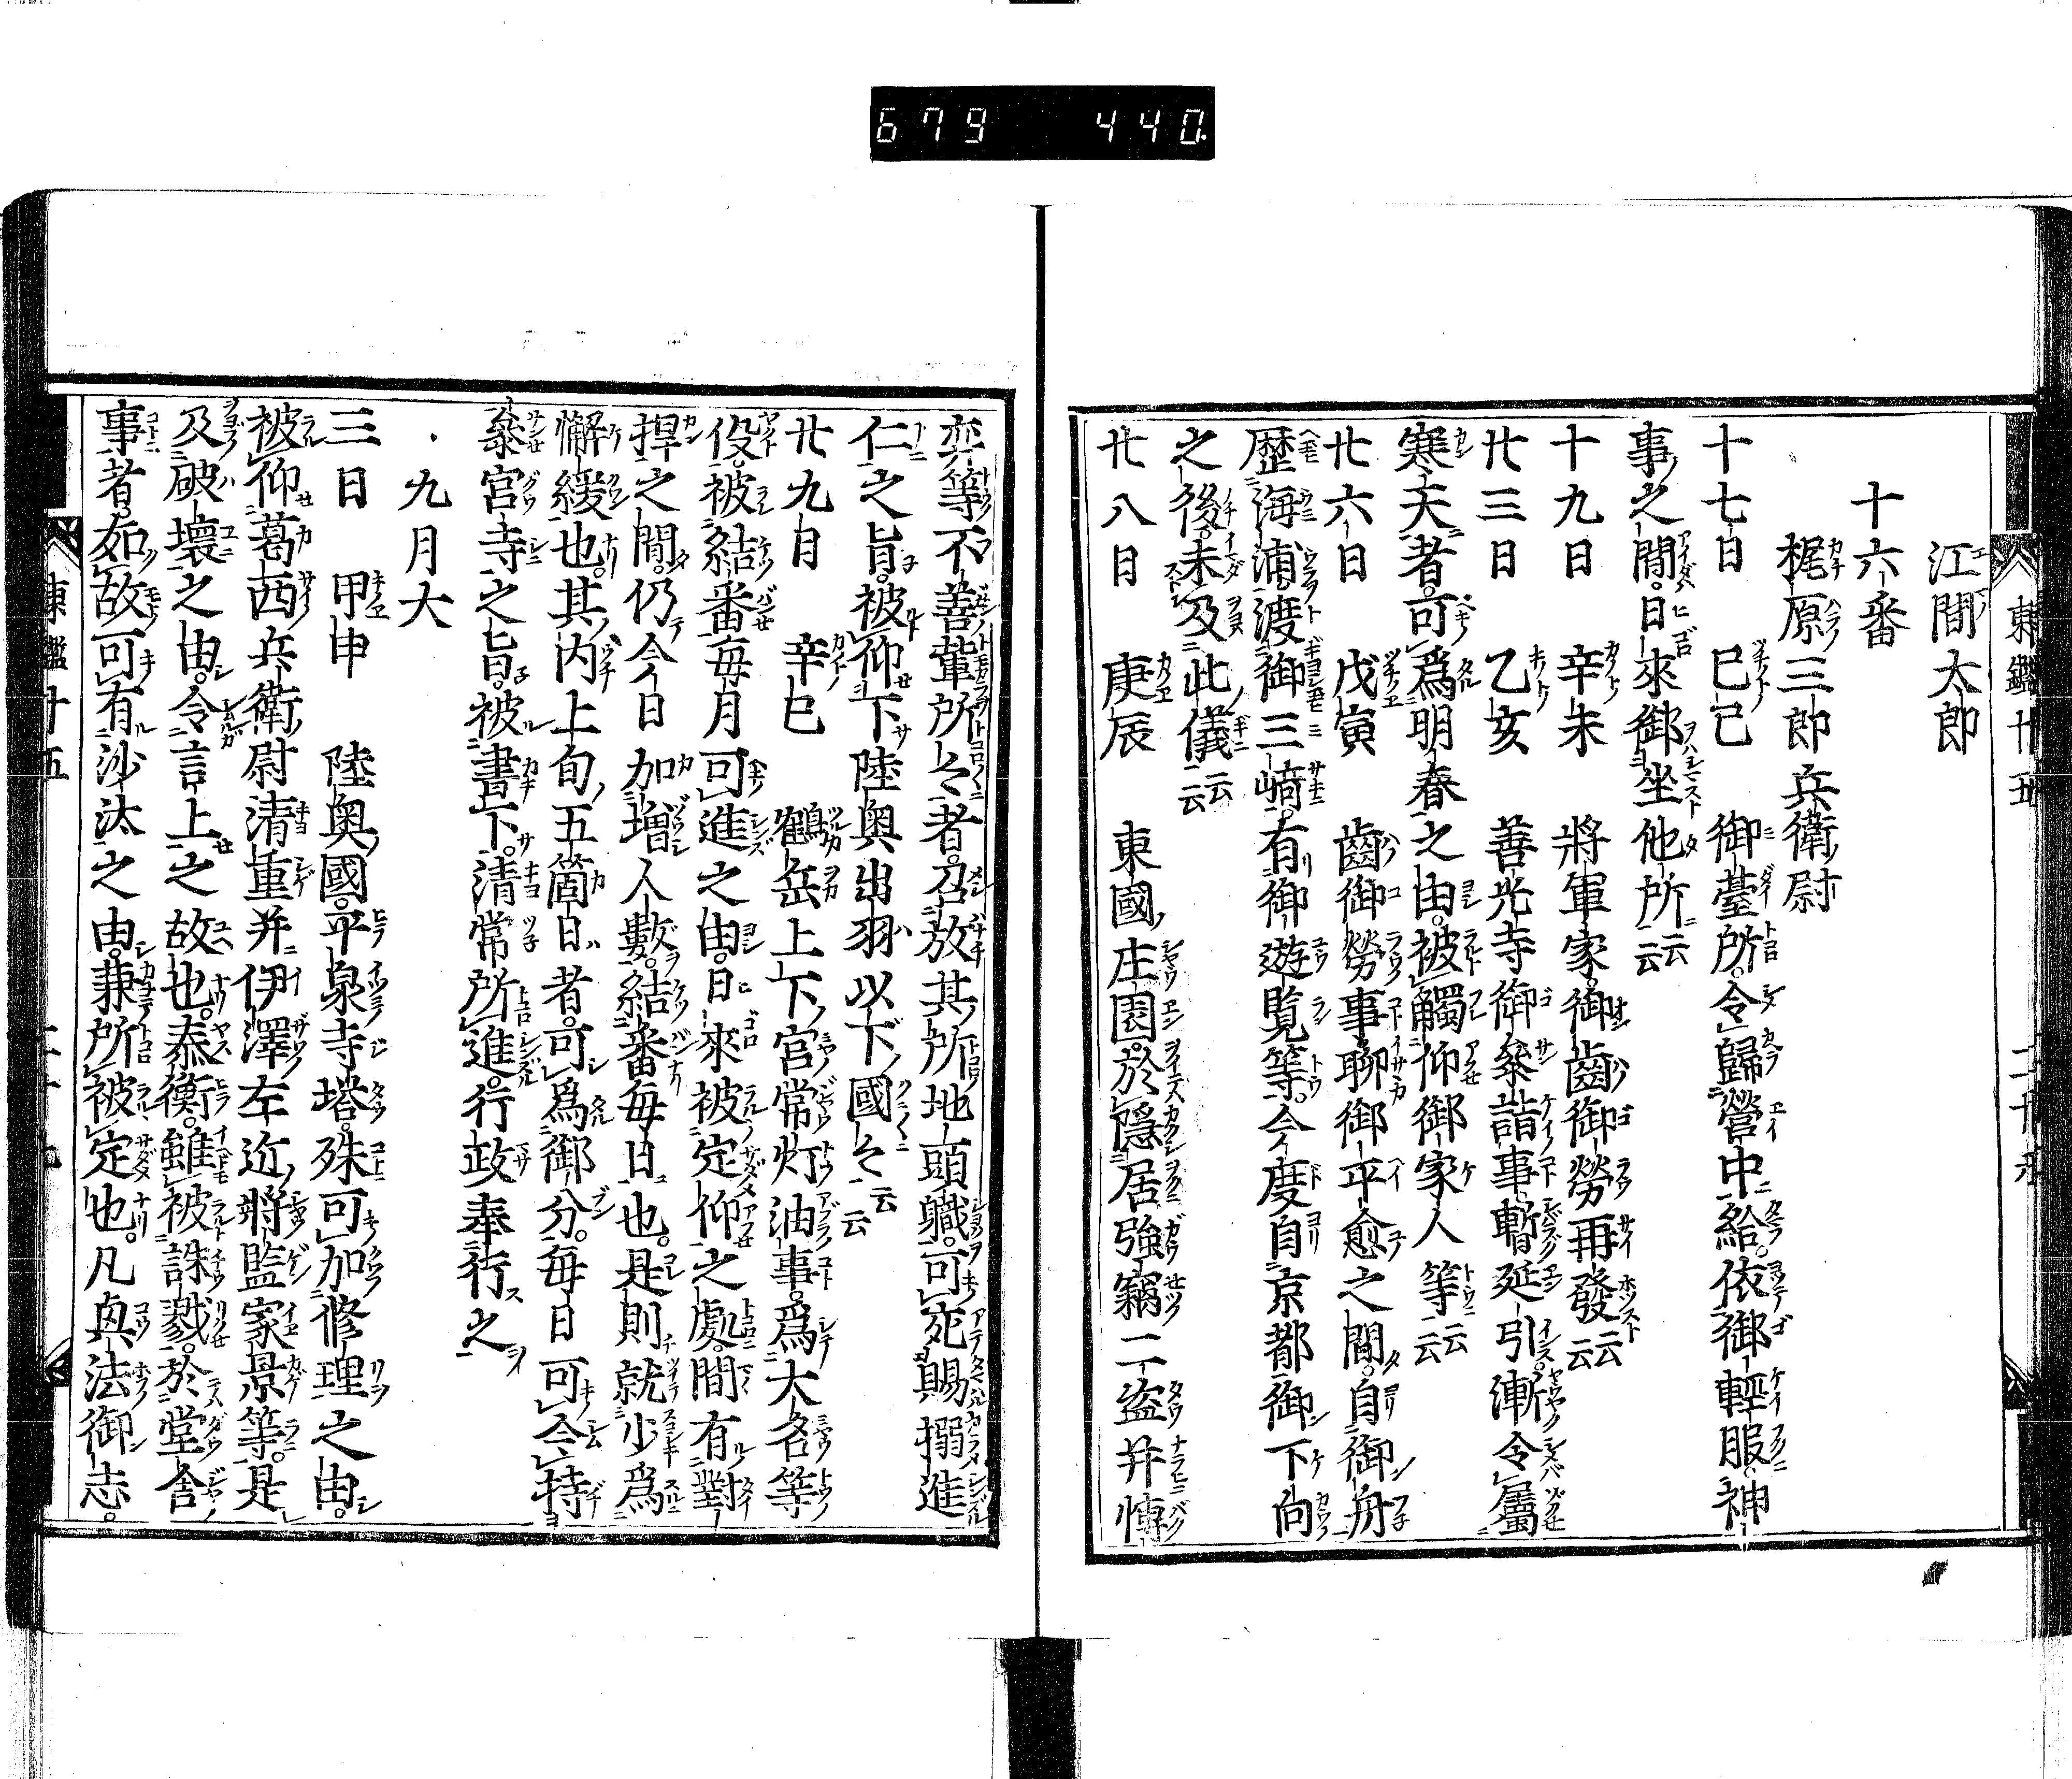 679 440
東鑑廿五
江間太郎
十六番
梶原三郎兵衛尉
十七日 巳巳 御臺所。令歸營中給。依御輕服。神
事之間。日來御坐他所云云
十九日 辛未 將軍家。御齒御勞再發云云
廿三日 乙亥 善光寺御參詣事。暫延引。漸令屬
寒天者。可爲明春之由。被觸仰御家人等云云
廿六日 戊寅 齒御勞事聊御平愈之間。自御舟
歷海浦。渡御三﨑。有御遊覧等。今度自京都御下向
之後。未及此儀云云
廿八日 庚辰 東國庄園。於隱居強竊二盜并博
奕等不善輩所々者。召放其所地頭職。可宛賜搦進
仁之旨。被仰下陸奥出羽以下國々云云
廿九日 辛巳 鶴岳上下宮常灯油事。爲大名等
役。被結番毎月可進之由。日來被定仰之處。間有對
捍之間。仍今日加增人數。結番毎日也。是則就少爲
懈緩也。其内上旬五箇日者。可爲御分。毎日可令持
參宮寺之旨。被書下。清常所進。行政奉行之
九月大
三日 甲申 陸奥國。平泉寺塔。殊可加修理之由。
被仰葛西兵衛尉清重并伊澤左近將監家景等。是
及破壞之由。令言上之故也。泰衡。雖被誅戮。於堂舎
事者。如故可有沙汰之由。兼所被定也。凡眞法御志。
東鑑廿五